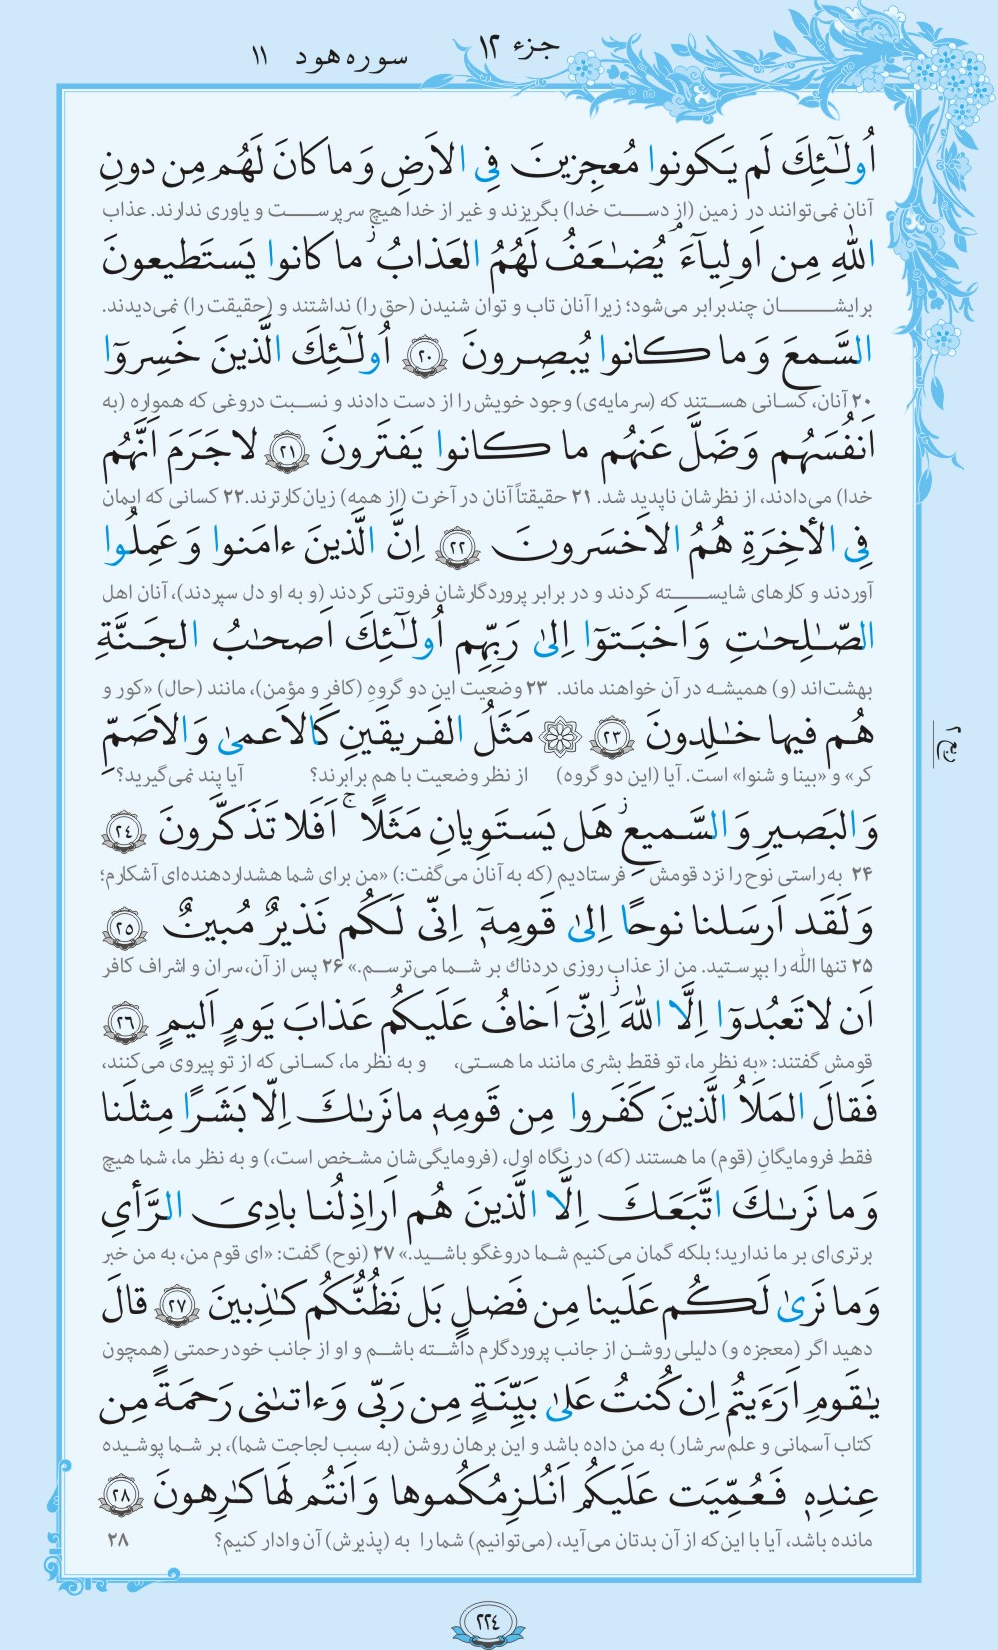 جزء ۱۲
سوره هود ۱۱
اُولـٰٓئِكَ لَم یَـكونوا مُعجِزینَ فِی الاَرضِ وَ ما كانَ لَهُم مِن دونِ
آنان نمی‌توانند در زمین (از دست خدا) بگریزند و غیر از خدا هیچ سرپرست و یاوری ندارند. عذاب
اللهِ مِن اَولِیآءَ ۘ یُضـٰعَفُ لَهُمُ العَذابُ ۚ ما كانوا یَستَطیعونَ
برایشان چندبرابر می‌شود؛ زیرا آنان تاب و توان شنیدن (حق را) نداشتند و (حقیقت را) نمی‌دیدند.
السَّـمعَ وَ ما كـانوا یُبصِـرونَ ﴿۲۰﴾ اُولـٰٓئِكَ الَّذینَ خَسِروٓا
۲۰ آنان، کسانی هستند که (سرمایه‌ی) وجود خویش را از دست دادند و نسبت دروغی که همواره (به
اَنفُسَهُم وَ ضَلَّ عَنهُم ما كـانوا یَفتَرونَ ﴿۲۱﴾ لا جَرَمَ اَنَّهُم
خدا) می‌دادند، از نظرشان ناپدید شد. ۲۱ حقیقتاً آنان در آخرت (از همه) زیان‌کارترند. ۲۲ کسانی که ایمان
فِی الأخِرَةِ هُمُ الاَخسَرونَ ﴿۲۲﴾ اِنَّ الَّذینَ ءامَنوا وَ عَمِلُوا
آوردند و کارهای شایسته کردند و در برابر پروردگارشان فروتنی کردند (و به او دل سپردند)، آنان اهل
الصّـٰلِحـٰتِ وَ اَخبَـتوٓا اِلیٰ رَبِّهِم اُولـٰٓئِكَ اَصحـٰبُ الجَـنَّةِ
بهشت‌اند (و) همیشه در آن خواهند ماند. ۲۳ وضعیت این دو گروهِ (کافر و مؤمن)، مانند (حال) «کور و
هُم فیها خـٰلِدونَ ﴿۲۳﴾ ۞ مَثَلُ الفَریقَینِ كَالاَعمیٰ وَ الاَصَمِّ
کر» و «بینا و شنوا» است. آیا (این دو گروه) از نظر وضعیت با هم برابرند؟ آیا پند نمی‌گیرید؟
وَ البَصیرِ وَ السَّـمیعِ ۚ هَل یَسـتَوِیانِ مَثَلًا ۚ اَفَلا تَذَكَّرونَ ﴿۲٤﴾
۲۴ به‌راستی نوح را نزد قومش فرستادیم (که به آنان می‌گفت:) «من برای شما هشداردهنده‌ای آشکارم؛
وَ لَقَد اَرسَلنا نوحًا اِلیٰ قَومِهٖٓ اِنّی لَـكُم نَذیرٌ مُبینٌ ﴿۲٥﴾
۲۵ تنها الله را بپرستید. من از عذاب روزی دردناك بر شما می‌ترسم.» ۲۶ پس از آن، سران و اشراف کافر
اَن لا تَعبُدوٓا اِلَّا اللهَ ۚ اِنّیٓ اَخافُ عَلَیكُم عَذابَ یَومٍ اَلیمٍ ﴿۲٦﴾
قومش گفتند: «به نظر ما، تو فقط بشری مانند ما هستی، و به نظر ما، کسانی که از تو پیروی می‌کنند،
فَقالَ المَلَاُ الَّذینَ كَفَروا مِن قَومِهٖ ما نَرىٰكَ اِلّا بَشَرًا مِثلَنا
فقط فرومایگانِ (قوم) ما هستند (که) در نگاه اول، (فرومایگی‌شان مشخص است،) و به نظر ما، شما هیچ
وَ ما نَرىٰكَ اتَّبَعَـكَ اِلَّا الَّذینَ هُم اَراذِلُنا بادِیَ الرَّأیِ
برتری‌ای بر ما ندارید؛ بلکه گمان می‌کنیم شما دروغگو باشید.» ۲۷ (نوح) گفت: «ای قوم من، به من خبر
وَ ما نَریٰ لَـكُم عَلَینا مِن فَضلٍ بَل نَظُنُّكُم كـٰذِبینَ ﴿۲۷﴾ قالَ
دهید اگر (معجزه و) دلیلی روشن از جانب پروردگارم داشته باشم و او از جانب خود رحمتی (همچون
یـٰقَومِ اَرَءَیتُم اِن كُنتُ عَلیٰ بَیِّنَةٍ مِن رَبّی وَ ءاتىٰنی رَحمَةً مِن
کتاب آسمانی و علم سرشار) به من داده باشد و این برهان روشن (به سبب لجاجت شما)، بر شما پوشیده
عِندِهٖ فَعُمِّیَت عَلَیكُم اَنُلزِمُكُموها وَ اَنتُم لَها كـٰرِهونَ ﴿۲۸﴾
مانده باشد، آیا با این‌که از آن بدتان می‌آید، (می‌توانیم) شما را به (پذیرش) آن وادار کنیم؟ ۲۸
۲۲٤